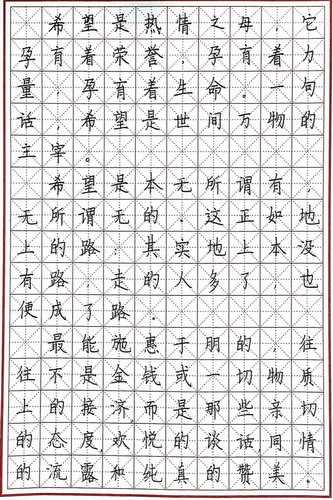 希望是热情之母，它
孕育着荣誉，孕育着力
量，孕育着生命。一句
话，希望是世间万物的
主宰。
希望是本无所谓有，
无所谓无的．这正如地
上的路；其实地上本没
有路，走的人多了，也
便成了路．
最能施惠于朋的，往
往不是金钱或一切物质
上的接济，而是那些亲切
的态度，欢悦的谈话，同情
的流露和纯真的赞美．